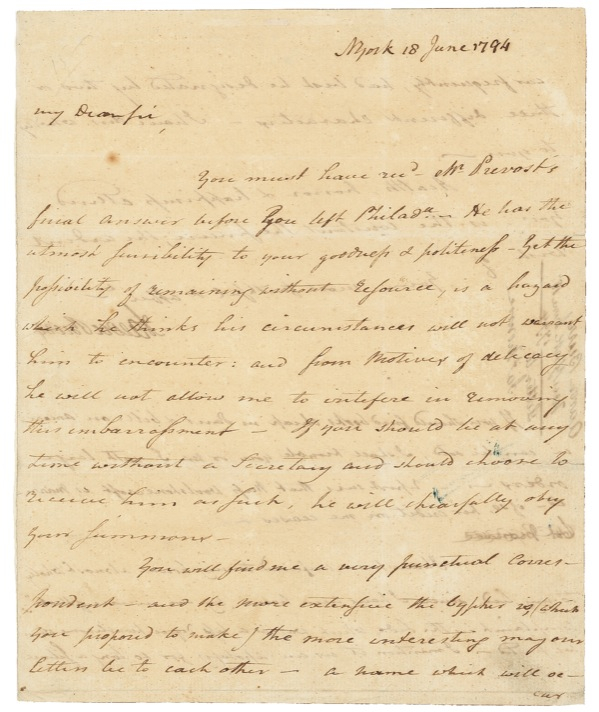 NYork 18 June 1794
My Dear Sir,
You must have recd. Mr. Prevost's
final answer before you left Philada. He has the
utmost sensibility to your goodness & politeness - Yet the
possibility of remaining without resource, is a hazard
which he thinks his circumstances will not warrant
him to encounter: and from motives of delicacy
he will not allow me to interfere in removing
this embarrassment - If you should be at any
time without a Secretary and should choose to
receive him as such, he will chearfully obey
your summons -
You will find me a very punctual corres-
pondent - and the more extensive the Cypher is (which
you proposed to make) the more interesting may our
letters be to each other - a name which will oc-
cur